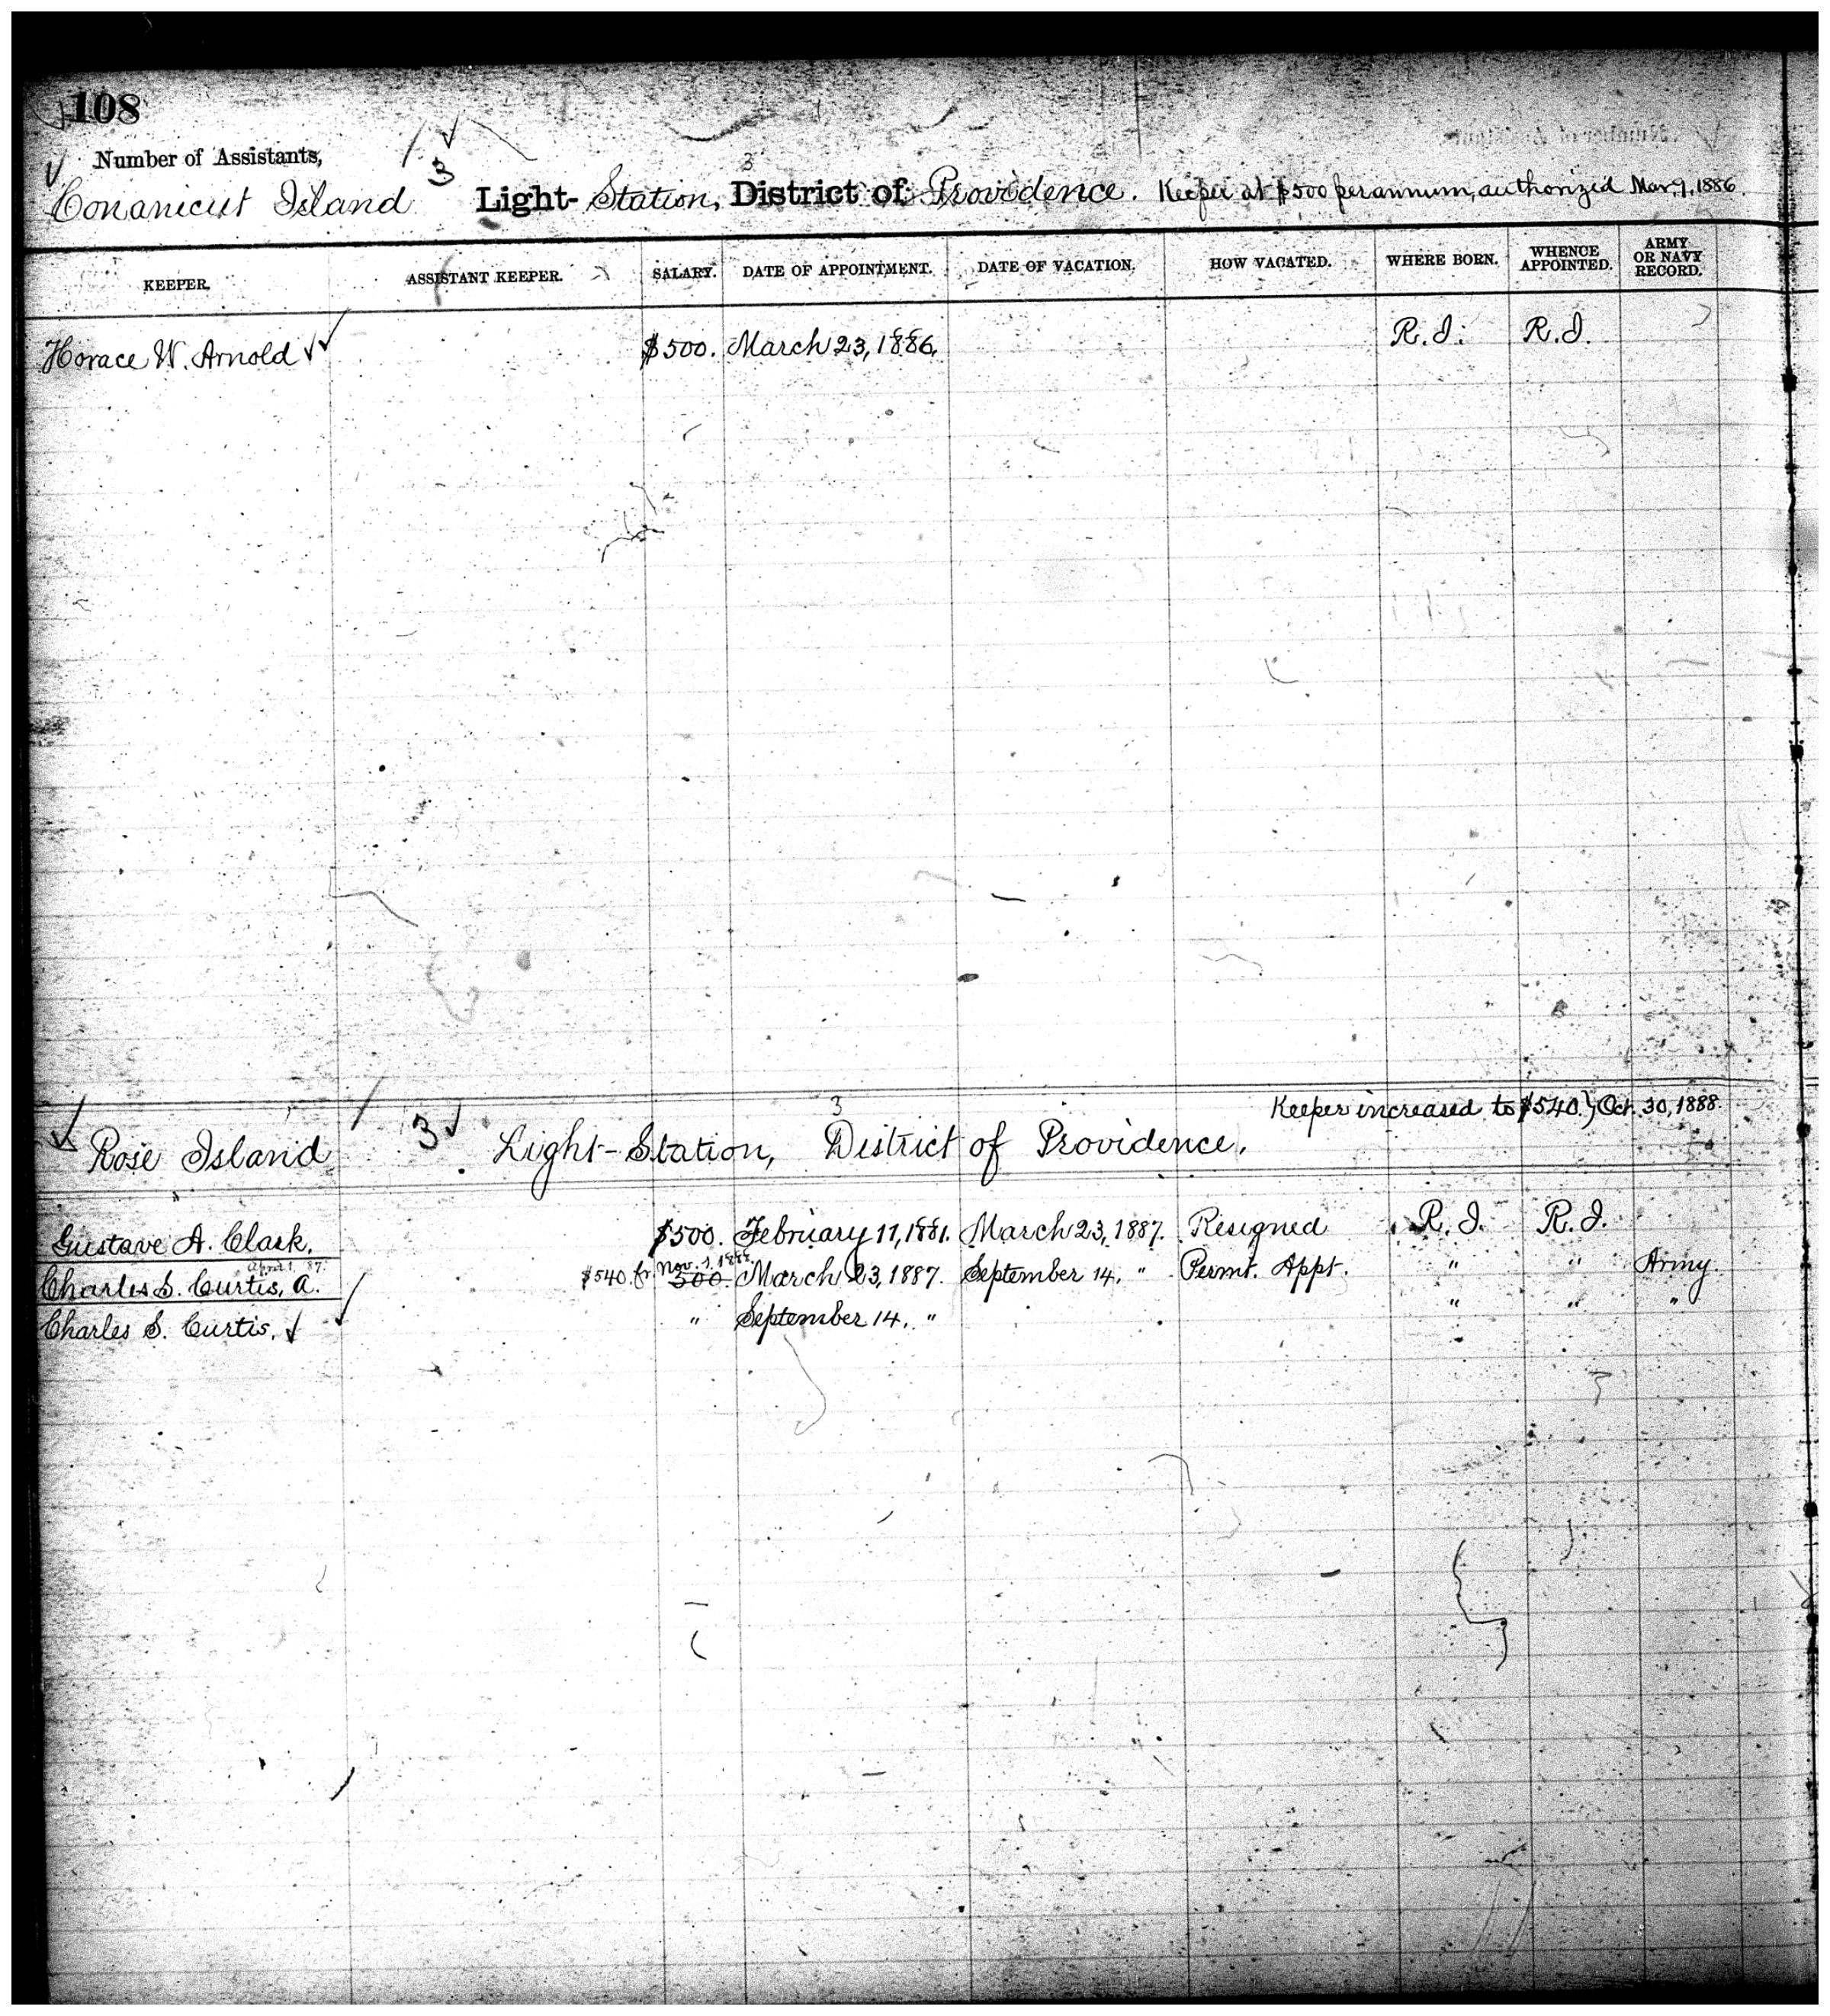 108
Number of Assistants,
3
Conanicut Island Light-Station, District of Providence. Keeper at $500 per annum, authorized Mar. 9, 1886.
KEEPER. ASSISTANT KEEPER. SALARY. DATE OF APPOINTMENT. DATE OF VACATION. HOW VACATED. WHERE BORN. WHENCE APPOINTED. ARMY OR NAVY RECORD.
Horace W. Arnold $500. March 23, 1886. R.I. R.I.
3 Keeper increased to $540.} Oct. 30, 1888.
Rose Island 3 Light-Station, District of Providence.
Gustave A. Clark. $500. February 11, 1881. March 23, 1887. Resigned R.I. R.I.
April 1. 87. Nov. 1. 1888.
Charles S. Curtis, a. $540. fr. 500. March 23, 1887. September 14, " Permt. Appt. " " Army
Charles S. Curtis. " September 14, " " " "